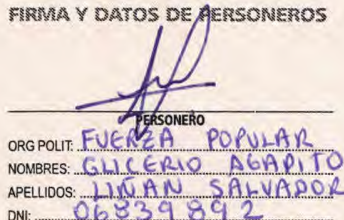 FIRMA Y DATOS DE PERSONEROS
PERSONERO
ORG POLIT: FUERZA POPULAR
NOMBRES: GLICERIO AGAPITO
APELLIDOS: LIÑAN SALVADOR
DNI: 06839892